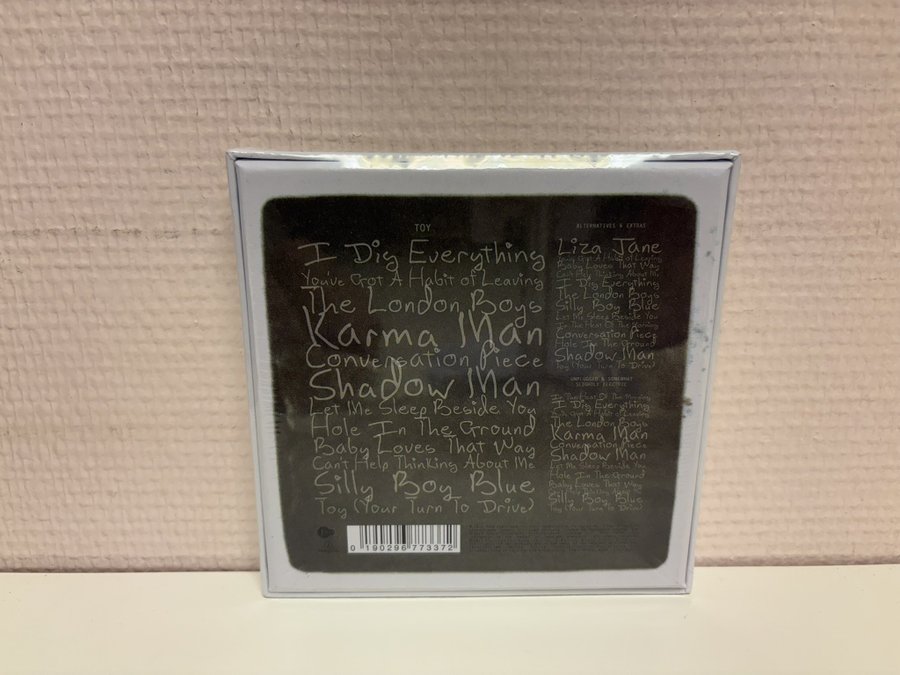 TOY
I Dig Everything
You've Got A Habit of Leaving
The London Boys
Karma Man
Conversation Piece
Shadow Man
Let Me Sleep Beside You
Hole In The Ground
Baby Loves That Way
Can't Help Thinking About Me
Silly Boy Blue
Toy (Your Turn To Drive)
ALTERNATIVES & EXTRAS
Liza Jane
You've Got A Habit of Leaving
Baby Loves That Way
Can't Help Thinking About Me
I Dig Everything
The London Boys
Silly Boy Blue
Let Me Sleep Beside You
In The Heat Of The Morning
Conversation Piece
Hole In The Ground
Shadow Man
Toy (Your Turn To Drive)
UNPLUGGED & SOMEWHAT
SLIGHTLY ELECTRIC
In The Heat Of The Morning
I Dig Everything
You've Got A Habit of Leaving
The London Boys
Karma Man
Conversation Piece
Shadow Man
Let Me Sleep Beside You
Hole In The Ground
Baby Loves That Way
Can't Help Thinking About Me
Silly Boy Blue
Toy (Your Turn To Drive)
0 190296 773372